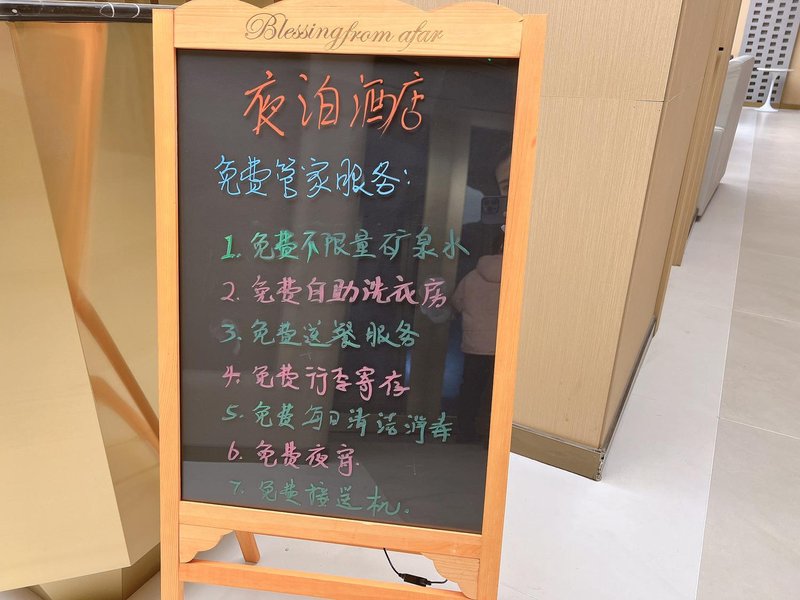 Blessing from afar
夜泊酒店
免费管家服务:
1. 免费不限量矿泉水
2. 免费自助洗衣房
3. 免费送餐服务
4. 免费行李寄存
5. 免费每日清洁消毒
6. 免费夜宵
7. 免费接送机.